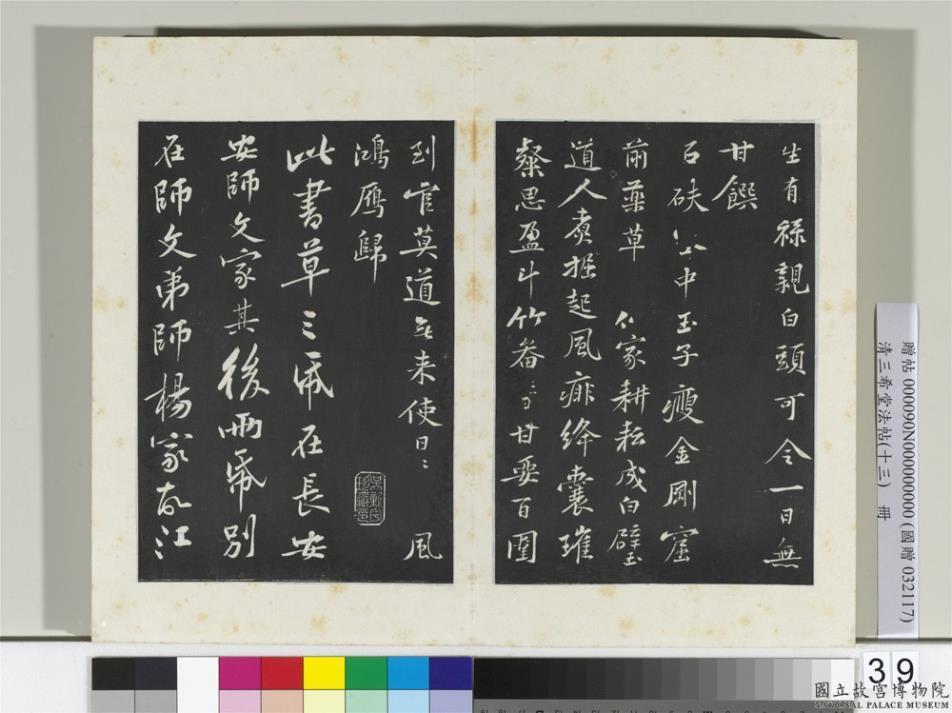 生有祿親白頭可令一日無
甘饌
石砆 中玉子瘦金剛窟
前藥草 人家耕耘成白璧
道人煮掘起風痱絳囊璀
粲思盈斗竹畚 甘要百
到官莫道無來使日〻 風
鴻雁歸
此書草〻第在長安
安師文家其後兩第別
在師文弟師楊家故江
贈帖 000090N000000000 (國贈 032117)
清三希堂法帖(十三) 冊
39
國立故宮博物院
NATIONAL PALACE MUSEUM